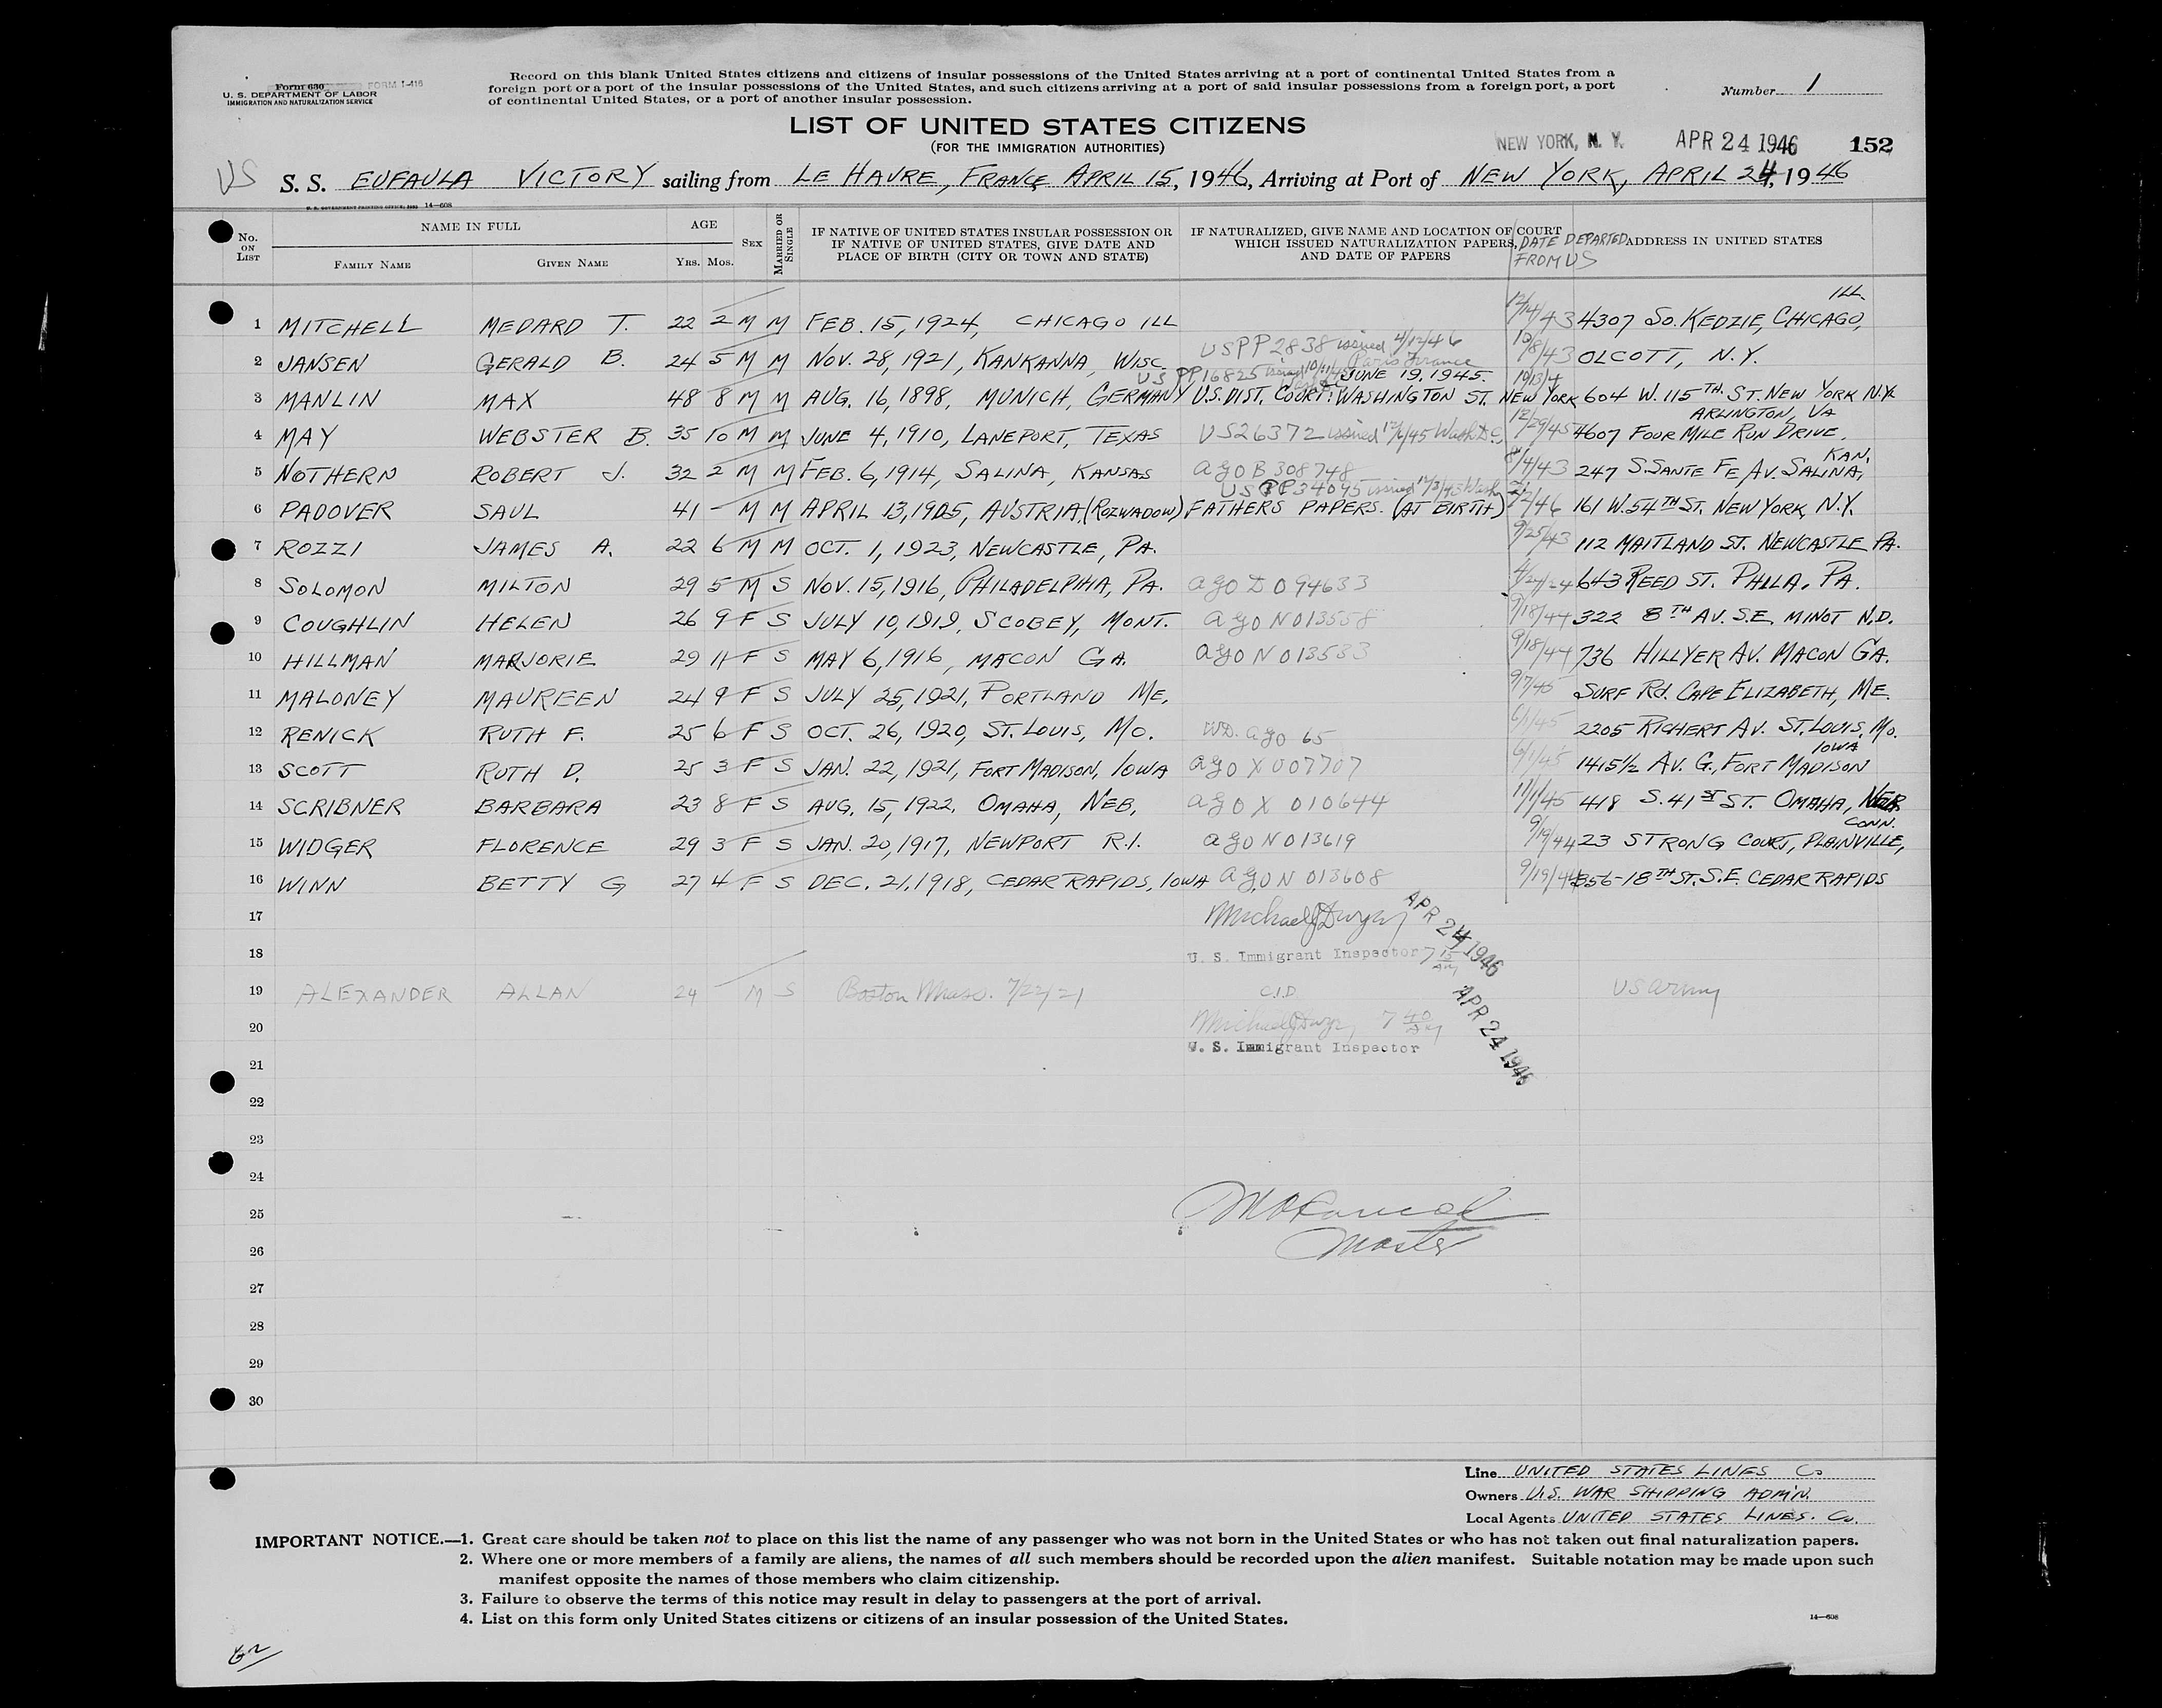 Form 630 FORM I-416
U. S. DEPARTMENT OF LABOR
IMMIGRATION AND NATURALIZATION SERVICE
Record on this blank United States citizens and citizens of insular possessions of the United States arriving at a port of continental United States from a
foreign port or a port of the insular possessions of the United States, and such citizens arriving at a port of said insular possessions from a foreign port, a port
of continental United States, or a port of another insular possession.
Number 1
LIST OF UNITED STATES CITIZENS
(FOR THE IMMIGRATION AUTHORITIES)
NEW YORK, N. Y. APR 24 1946 152
US S. S. EUFAULA VICTORY sailing from LE HAVRE, FRANCE APRIL 15, 1946, Arriving at Port of NEW YORK, APRIL 24, 1946
14—608
No. ON LIST
NAME IN FULL
FAMILY NAME GIVEN NAME
AGE
YRS. MOS.
SEX
MARRIED OR SINGLE
IF NATIVE OF UNITED STATES INSULAR POSSESSION OR
IF NATIVE OF UNITED STATES, GIVE DATE AND
PLACE OF BIRTH (CITY OR TOWN AND STATE)
IF NATURALIZED, GIVE NAME AND LOCATION OF COURT
WHICH ISSUED NATURALIZATION PAPERS,
AND DATE OF PAPERS
DATE DEPARTED
FROM US
ADDRESS IN UNITED STATES
1 MITCHELL MEDARD T. 22 2 M M FEB. 15, 1924, CHICAGO ILL 12/14/43 4307 SO. KEDZIE, CHICAGO, ILL.
2 JANSEN GERALD B. 24 5 M M NOV. 28, 1921, KANKANNA, WISC. USPP 2838 issued 4/12/46 Paris France 10/8/43 OLCOTT, N.Y.
US PP 16825 issued JUNE 19, 1945.
3 MANLIN MAX 48 8 M M AUG. 16, 1898, MUNICH, GERMANY U.S. DIST. COURT: WASHINGTON ST. NEW YORK 604 W. 115TH. ST. NEW YORK N.Y.
4 MAY WEBSTER B. 35 10 M M JUNE 4, 1910, LANEPORT, TEXAS US 26372 issued 12/6/45 Wash D.C. 12/29/45 4607 FOUR MILE RUN DRIVE, ARLINGTON, VA
5 NOTHERN ROBERT J. 32 2 M M FEB. 6, 1914, SALINA, KANSAS AGO B 308748 8/4/43 247 S. SANTE FE AV. SALINA, KAN.
US PP 34095 issued Wash
6 PADOVER SAUL 41 - M M APRIL 13, 1905, AUSTRIA, (ROZWADOW) FATHERS PAPERS. (AT BIRTH) 161 W. 54TH ST. NEW YORK, N.Y.
7 ROZZI JAMES A. 22 6 M M OCT. 1, 1923, NEWCASTLE, PA. 9/25/43 112 MAITLAND ST. NEWCASTLE PA.
8 SOLOMON MILTON 29 5 M S NOV. 15, 1916, PHILADELPHIA, PA. AGO D 094633 643 REED ST. PHILA, PA.
9 COUGHLIN HELEN 26 9 F S JULY 10, 1919, SCOBEY, MONT. AGO N 013558 9/18/44 322 8TH AV. S.E. MINOT N.D.
10 HILLMAN MARJORIE 29 11 F S MAY 6, 1916, MACON GA. AGO N 013583 9/18/44 736 HILLYER AV. MACON GA.
11 MALONEY MAUREEN 24 9 F S JULY 25, 1921, PORTLAND ME. SURF RD. CAPE ELIZABETH, ME.
12 RENICK RUTH F. 25 6 F S OCT. 26, 1920, ST. LOUIS, MO. WD. AGO 65 6/1/45 2205 RICHERT AV. ST. LOUIS, MO.
13 SCOTT RUTH D. 25 3 F S JAN. 22, 1921, FORT MADISON, IOWA AGO X 007707 6/1/45 1415 1/2 AV. G., FORT MADISON IOWA
14 SCRIBNER BARBARA 23 8 F S AUG. 15, 1922, OMAHA, NEB. AGO X 010644 11/1/45 418 S. 41ST ST. OMAHA, NEB.
15 WIDGER FLORENCE 29 3 F S JAN. 20, 1917, NEWPORT R.I. AGO N 013619 9/19/44 23 STRONG COURT, PLAINVILLE, CONN.
16 WINN BETTY G 27 4 F S DEC. 21, 1918, CEDAR RAPIDS, IOWA AGO N 013608 9/19/44 356-18TH ST. S.E. CEDAR RAPIDS
17 Michael J Dwyer APR 24 1946
18 U. S. Immigrant Inspector 7 15 AM
19 ALEXANDER ALLAN 24 M S Boston Mass. 7/22/21 C.I.D US Army
20 Michael J Dwyer 7 40 APR 24 1946
U. S. Immigrant Inspector
21
22
23
24
25
26 Master
27
28
29
30
Line UNITED STATES LINES Co
Owners U.S. WAR SHIPPING ADM'N.
Local Agents UNITED STATES LINES. Co.
IMPORTANT NOTICE.—1. Great care should be taken not to place on this list the name of any passenger who was not born in the United States or who has not taken out final naturalization papers.
2. Where one or more members of a family are aliens, the names of all such members should be recorded upon the alien manifest. Suitable notation may be made upon such
manifest opposite the names of those members who claim citizenship.
3. Failure to observe the terms of this notice may result in delay to passengers at the port of arrival.
4. List on this form only United States citizens or citizens of an insular possession of the United States.
14—608